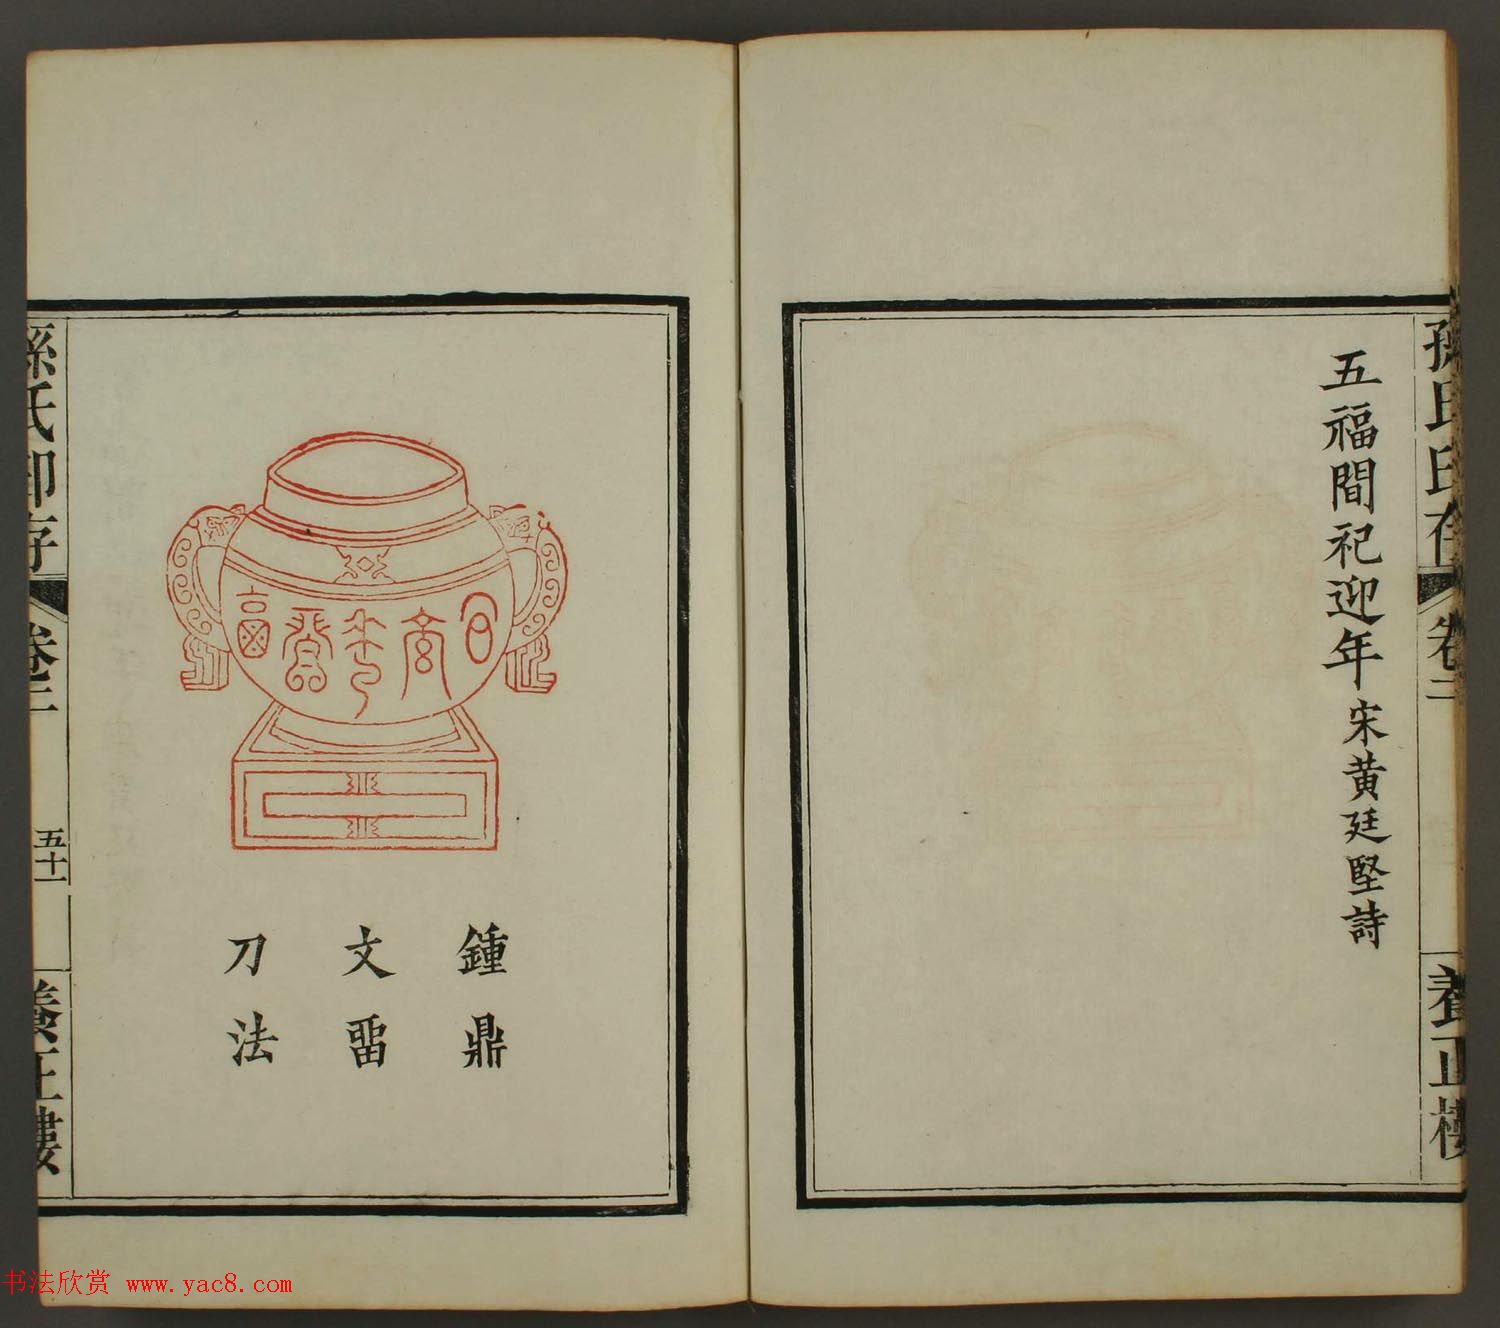 孫氏印存
卷二
養正樓
五福間祀迎年 宋黃廷堅詩
鍾鼎
文畱
刀法
孫氏印存
卷二
五十一
養正樓
书法欣赏 www.yac8.com